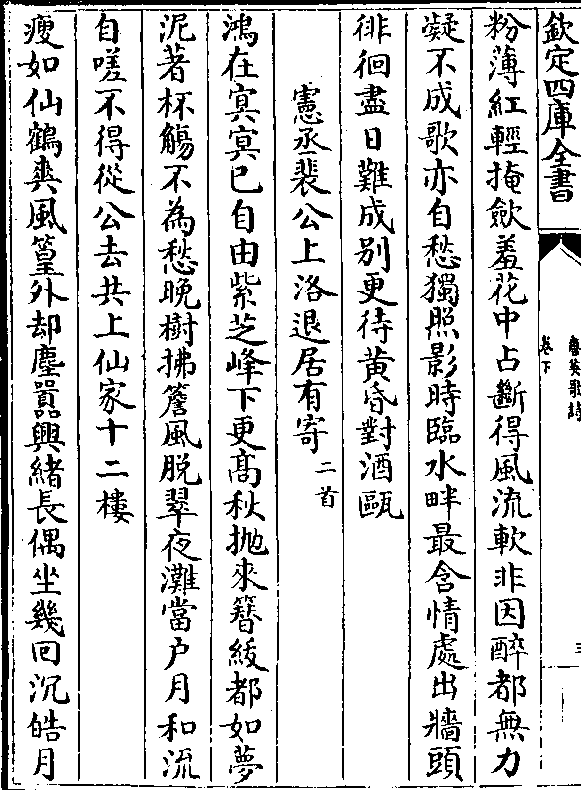 欽定四庫全書
唐英歌詩
卷下
三
粉薄紅輕掩斂羞花中占斷得風流軟非因醉都無力
凝不成歌亦自愁獨照影時臨水畔最含情處出牆頭
徘徊盡日難成别更待黄昏對酒甌
憲丞裴公上洛退居有寄二首
鴻在㝠㝠已自由紫芝峰下更髙秋抛來簪紱都如夢
泥著杯觴不為愁晩樹拂簷風脱翠夜灘當户月和流
自嗟不得從公去共上仙家十二樓
瘦如仙鶴爽風篁外却塵囂興緒長偶坐幾回沉皓月